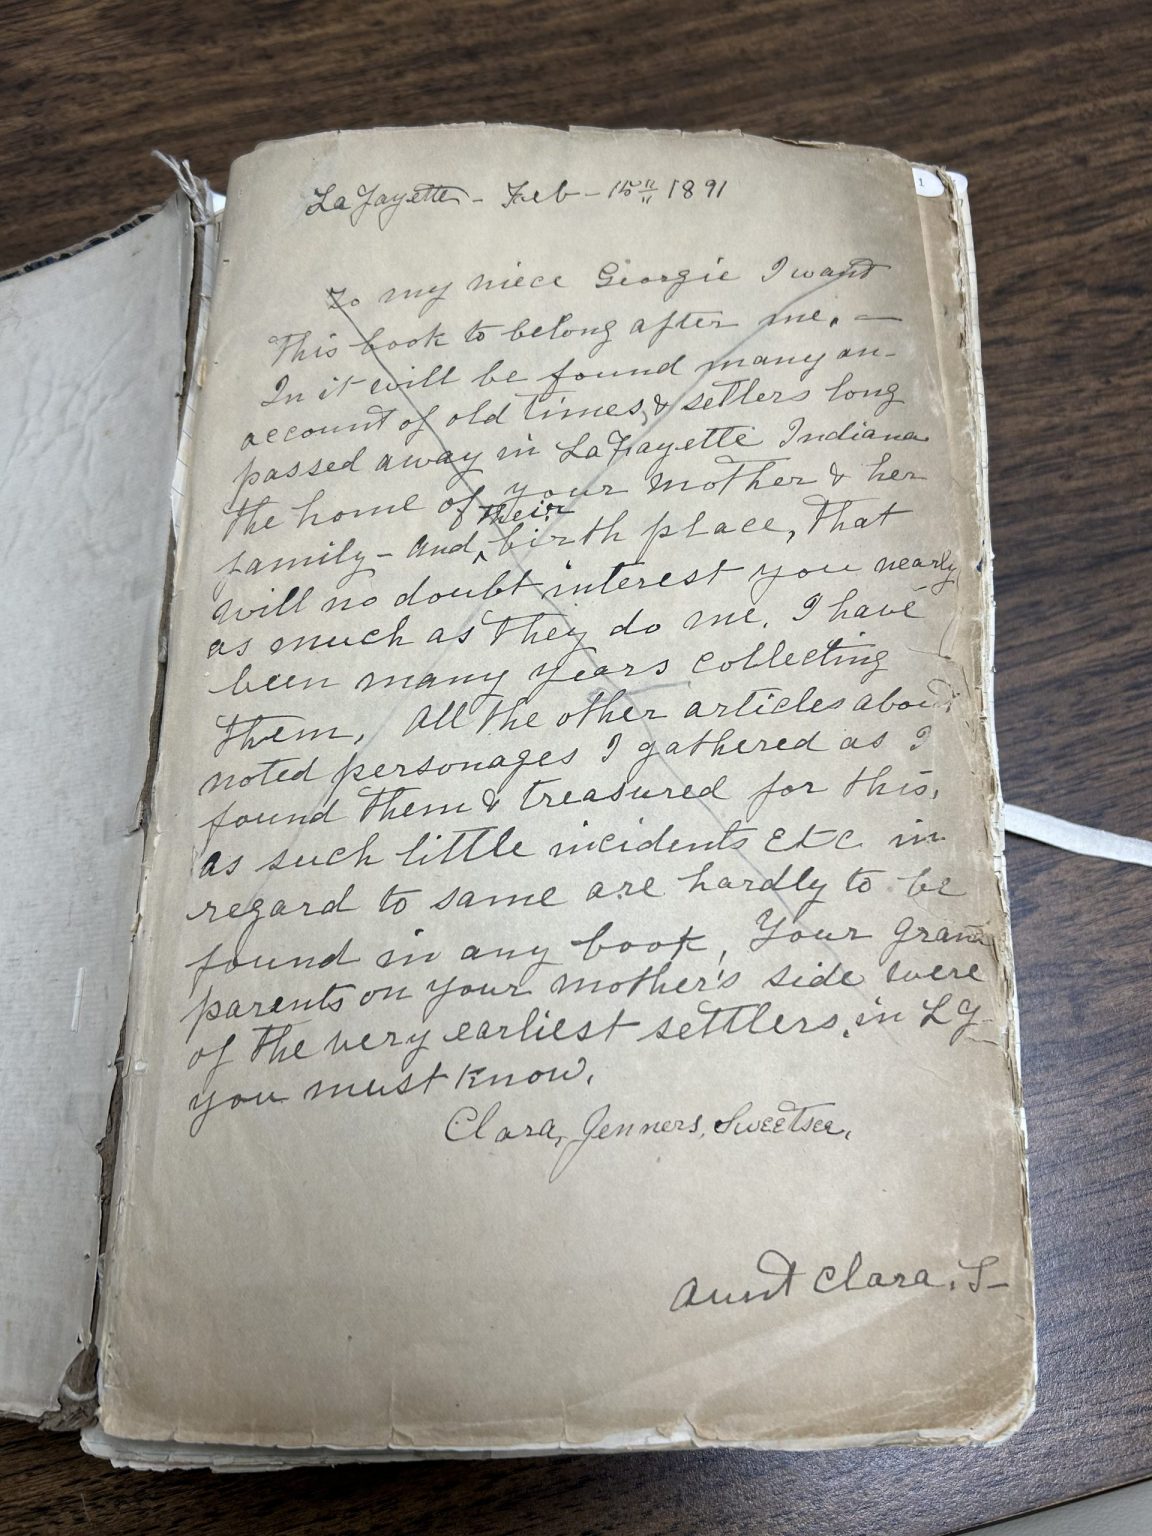 LaFayette - Feb - 15th 1891
1
To my niece Georgie I want
This book to belong after me. —
In it will be found many an-
account of old times, & settlers long
passed away in LaFayette Indiana
the home of your mother & her
family - and their birth place, That
will no doubt interest you nearly
as much as They do me. I have
been many years collecting
Them. All The other articles about
noted personages I gathered as I
found Them & treasured for this,
as such little incidents etc in
regard to same are hardly to be
found in any book, Your grand
parents on your mother's side were
of the very earliest settlers, in L F
you must know.
Clara, Jenners, Sweetser,
Aunt Clara. S-